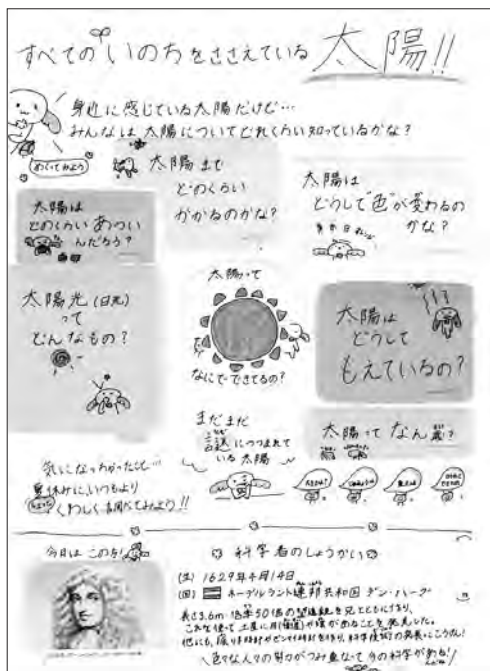 すべてのいのちをささえている 太陽!!
身近に感じている太陽だけど…
みんなは太陽についてどれくらい知っているかな?
めくってみよう
太陽は
どのくらいあつい
んだろう?
太陽まで
どのくらい
かかるのかな?
太陽は
どうして"色"が変わるの
かな?
太陽光(日光)
って
どんなもの?
太陽って
なにでできてるの?
太陽は
どうして
もえているの?
まだまだ
謎につつまれて
いる太陽
太陽ってなん歳?
気になっちゃったして…
夏休みに、いつもより
くわしく調べてみよう!!
今日はこの方!
科学者のしょうかい
(生) 1629年4月14日
(国) ネーデルラント連邦共和国 デン・ハーグ
長さ3.6m 倍率50倍の望遠鏡を兄とともにつくり、
これを使って土星に月(衛星)や環があることを発見した。
他にも、振り子時計や
色々な人々の努力がつみ重なって今の科学がある!